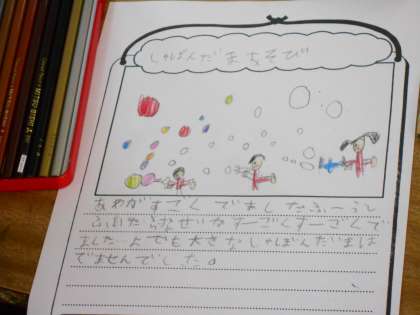 しゃぼんだまあそび
あわがすごくでましたふーうと
ふいたら
すーごくすーごくで
ました 人でも大きなしゃぼんだまは
でませんでした。
MITSUBISHI